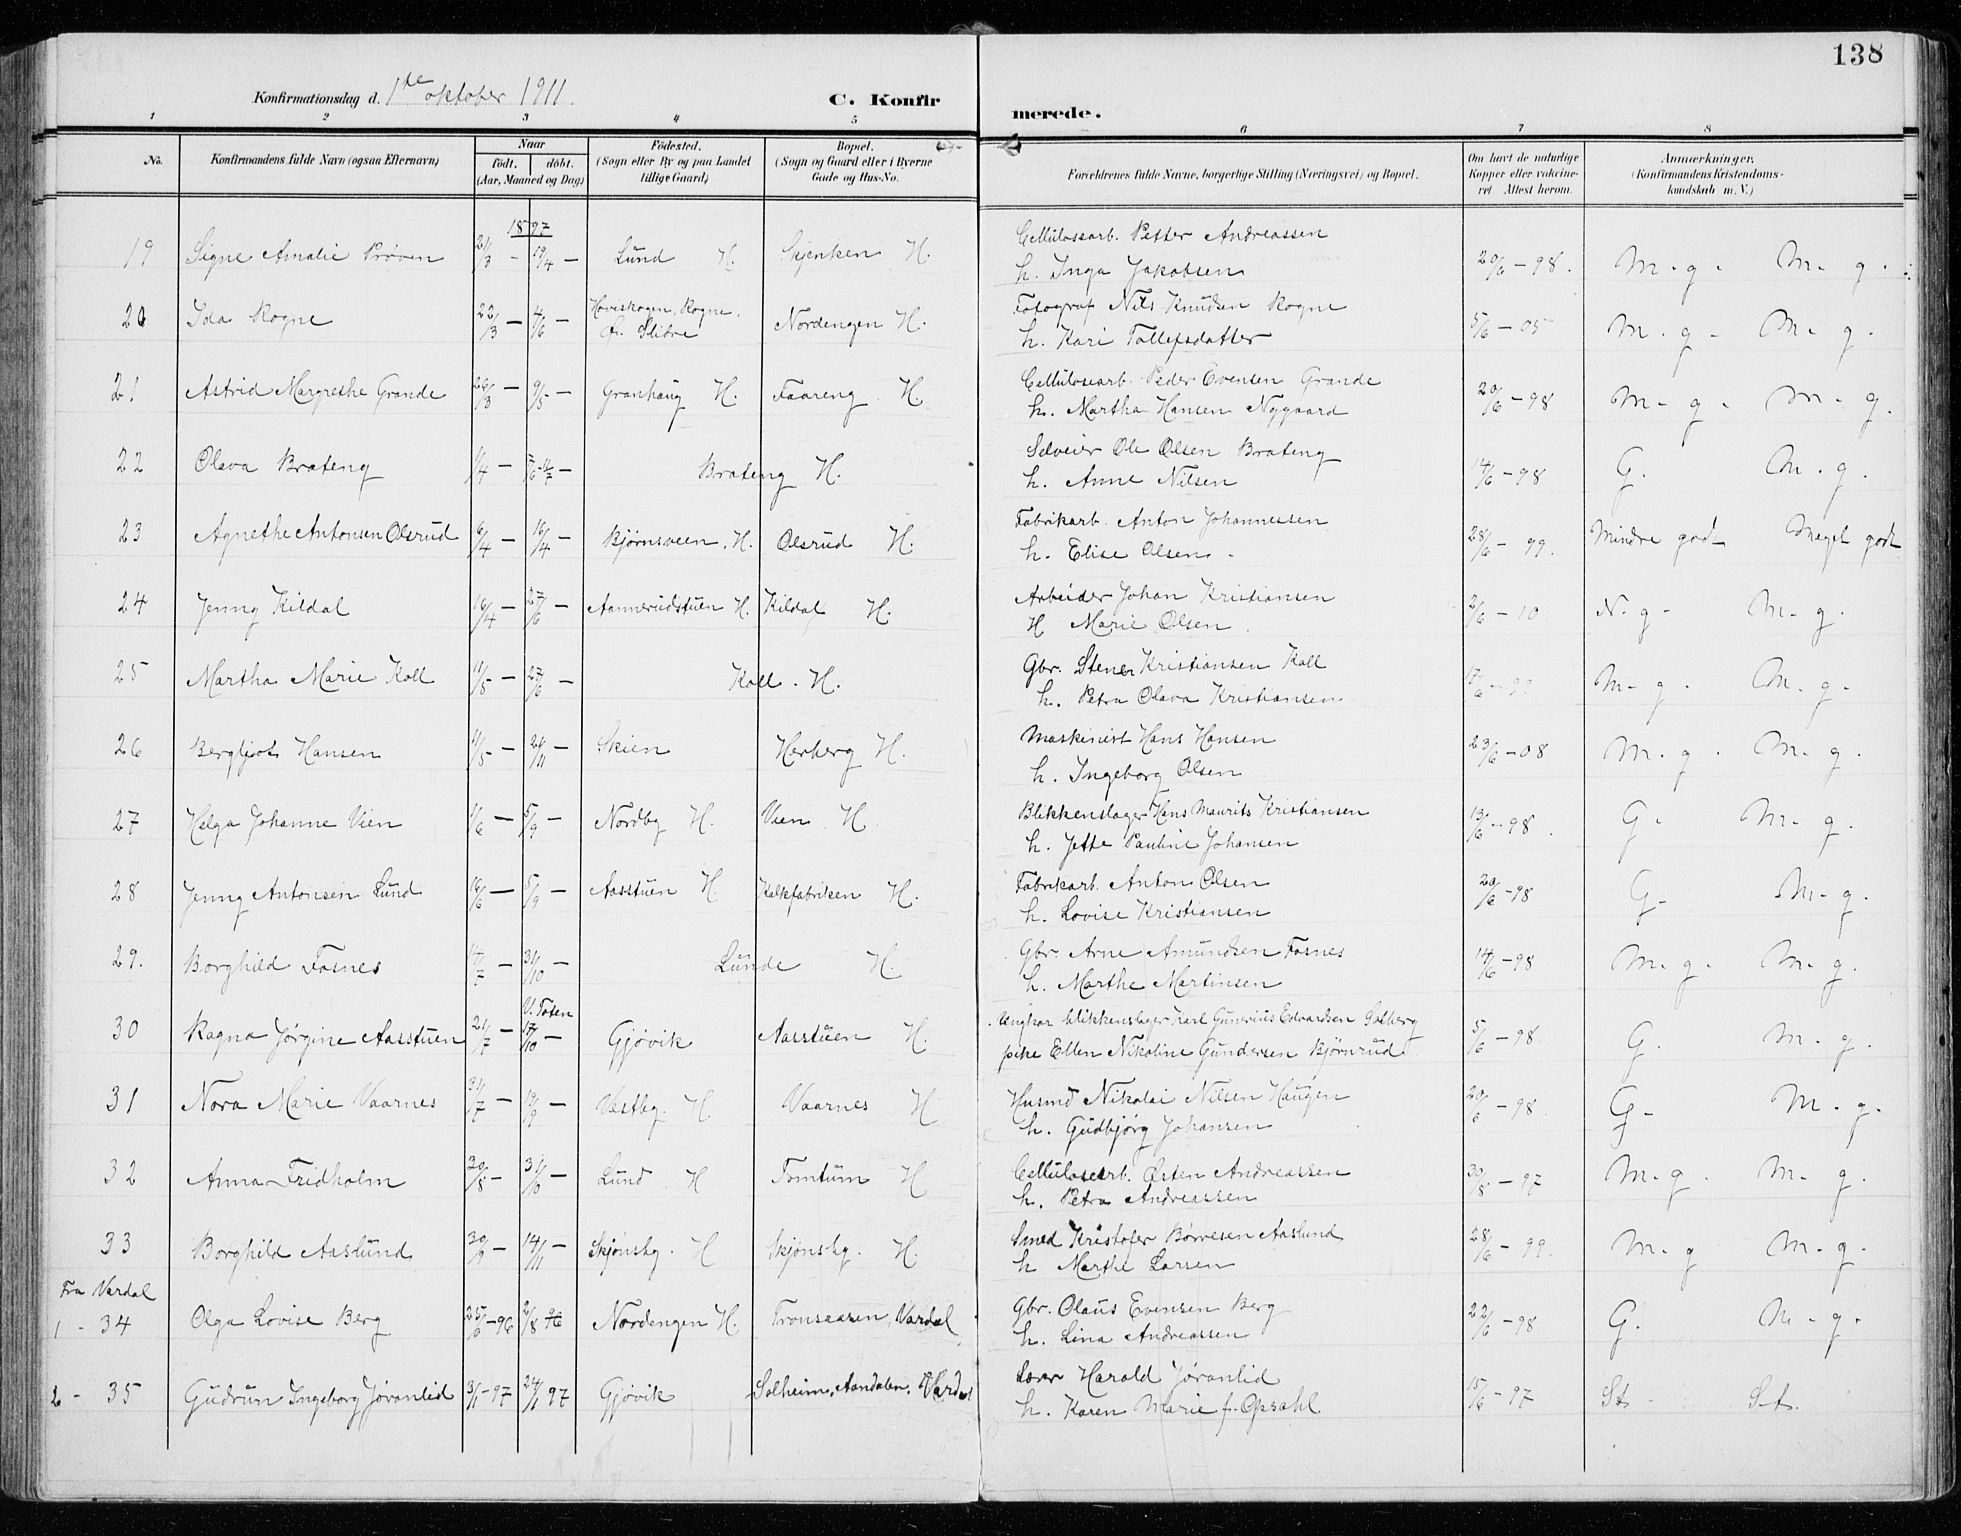 138
Konfirmationsdag d. 1ste oktober 1911. C. Konfirmerede.
1 2 3 4 5 6 7 8
No. Konfirmandens fulde Navn (ogsaa Efternavn) Naar födt. döbt. (Aar, Maaned og Dag) Födested. (Sogn eller By og paa Landet tillige Gaard) Bopæl. (Sogn og Gaard eller i Byerne Gade og Hus-No. Forældrenes fulde Navne, borgerlige Stilling (Næringsvei) og Bopæl. Om havt de naturlige Kopper eller vakcineret. Attest herom. Anmærkninger. (Konfirmandens Kristendomskundskab m. V.)
1897
19 Signe Amalie Prøven 21/3 – 19/4 – Lund H. Skjenken H. Cellulosearb. Petter Andreassen
h. Inga Jakobsen 20/6 – 98. M. g. M. g.
20 Ida Rogne 22/3 – 4/6 – Høveskogen, Rogne, Ø. Slidre Nordengen H. Fotograf Nils Knudsen Rogne
h. Kari Tollefsdatter 5/6 – 05 M. g. M. g.
21 Astrid Margrethe Grande 26/3 – 9/5 – Granhaug H. Faareng H. Cellulosearb. Peder Evensen Grande
h. Martha Hansen Nygaard 20/6 – 98 M. g. M. g.
22 Olava Brateng 1/4 – Brateng H. Selveier Ole Olsen Brateng
h. Anne Nilsen 14/6 – 98 G. M. g.
23 Agnethe Antonsen Olsrud 6/4 – 16/4 – Bjørnsveen, H. Olsrud H. Fabrikarb. Anton Johannessen
h. Elise Olsen. 28/6 – 99. Mindre godt Meget godt
24 Jenny Kildal 16/4 – 27/6 – Aannerudstuen H. Kildal H. Arbeider Johan Kristiansen
H Marie Olsen 2/6 – 10 N. g. M. g.
25 Martha Marie Koll 11/5 – 27/6 – Koll. H. Gbr. Stener Kristiansen Koll
h. Petra Olava Kristiansen M. g. M. g.
26 Bergljot Hansen 11/5 – 21/11 – Skien Herberg H. Maskinist Hans Hansen
h. Ingeborg Olsen 23/6 – 08 M. g. M. g.
27 Helga Johanne Vien 1/6 – 5/9 – Nordby H. Vien H Blikkenslager Hans Maurits Kristiansen
h. Jette Pauline Johansen 13/6 – 98. G. M. g.
28 Jenny Antonsen Lund 16/6 – 5/9 – Aasstuen H. Kalkfabriken H. Fabrikarb. Anton Olsen
h. Lovise Kristiansen 20/6 – 98 G. M. g.
29. Borghild Fosnes 17/7 – 31/10 – Lunde H. Gbr. Arne Amundsen Fosnes
h. Marthe Martinsen 14/6 – 98 M. g. M. g.
30 Ragna Jørgine Aasstuen 21/7 – V. Toten 17/10 – Gjøvik Aasstuen H. Ungkar blikkenslager Karl Gunerius Edvardsen Solberg
pike Ellen Nikoline Gundersen Bjørnrud 5/6 – 98 G. M. g.
31 Nora Marie Vaarnes 31/7 – 19/9 – Vestby. H. Vaarnes H Husmd Nikolai Nilsen Haugen
h. Gudbjørg Johansen 20/6 – 98. G. M. g.
32 Anna Fridholm 30/8 – 31/10 – Lund. H Tomtum H Cellulosearb. Østen Andreassen
h. Petra Andreassen 30/8 – 97 M. g. M. g.
33 Borghild Aaslund 30/9 – 14/11 – Skjønsby. H Skjønsby. H. Smed Kristofer Børresen Aaslund
h Marthe Larsen 28/6 – 99. M. g M. g.
Fra Vardal
1 - 34 Olga Lovise Berg 25/6 – 96 2/8 96 Nordengen H. Tronsaasen, Vardal Gbr. Olaus Evensen Berg
h. Lina Andreassen 22/6 – 98 G. M. g.
2 - 35 Gudrun Ingeborg Jøranlid 3/1 – 97 24/1 97 Gjøvik Solheim, Aandalen, Vardal Lærer Harald Jøranlid
h. Karen Marie f. Opsahl 15/6 – 97 St. St.